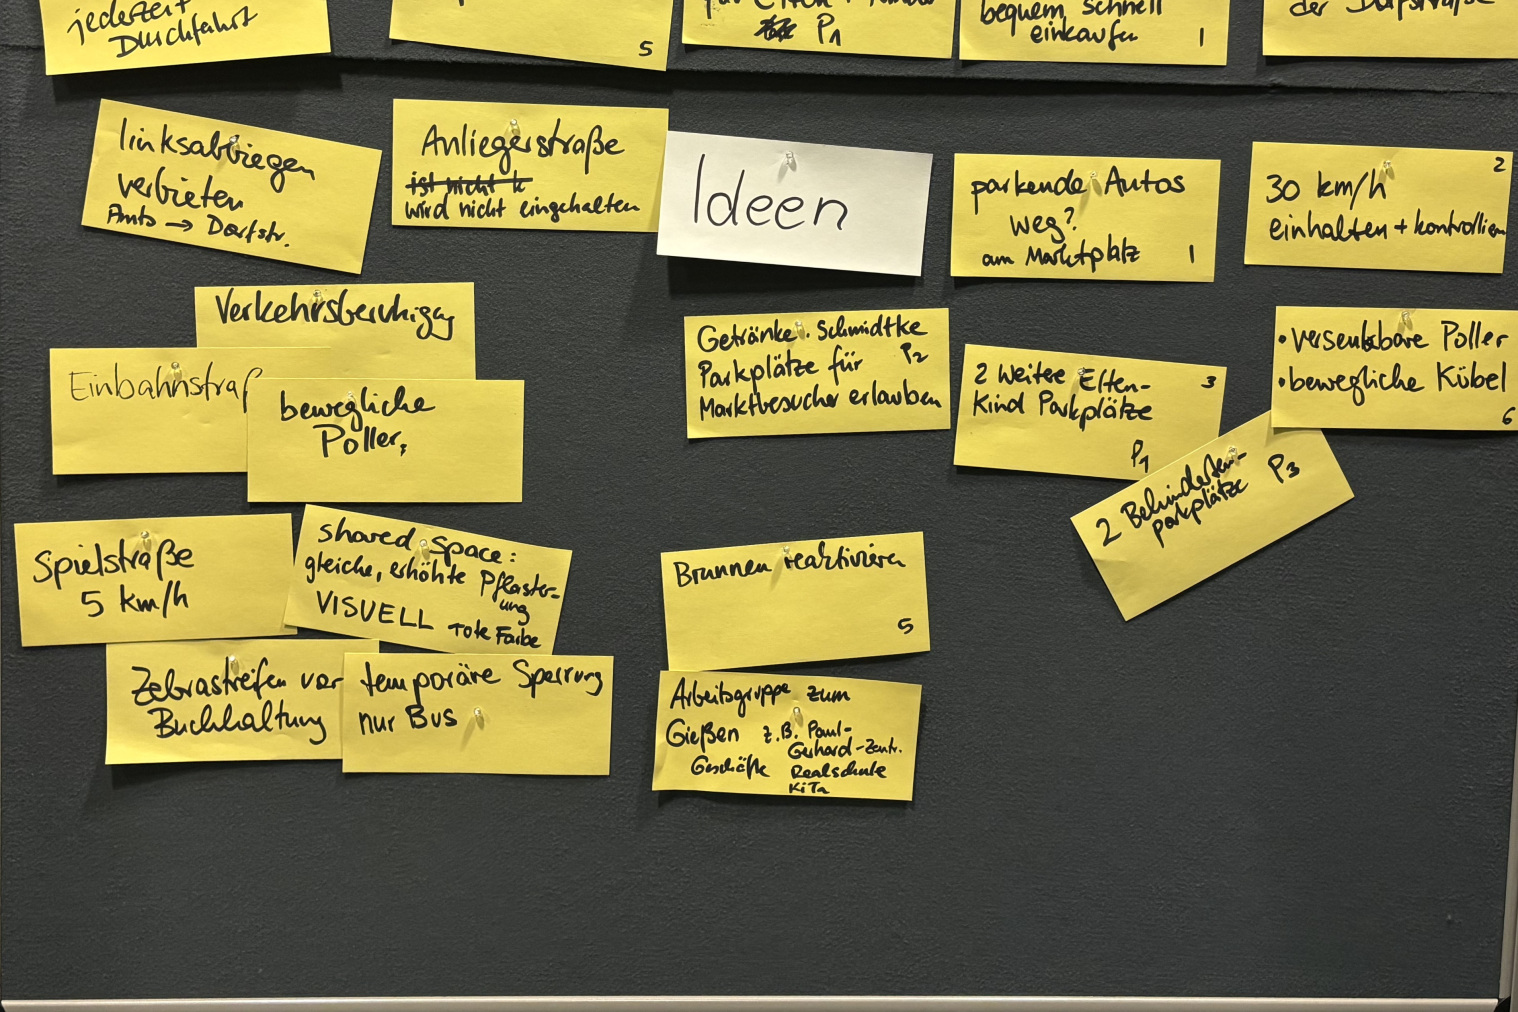 jederzeit
Durchfahrt
5
P1
bequem schnell
einkaufen
1
der Dorfstraße
linksabbiegen
verbieten
Amts → Dorfstr.
Anliegerstraße
ist nicht k
wird nicht eingehalten
Ideen
parkende Autos
weg?
am Marktplatz
1
2
30 km/h
einhalten + kontrollieren
Verkehrsberuhigg
Einbahnstraß
bewegliche
Poller,
Getränke Schmidtke
Parkplätze für P2
Marktbesucher erlauben
2 weitere Eltern-
Kind Parkplätze
3
P1
• versenkbare Poller
• bewegliche Kübel
6
2 Behinderten-
parkplätze P3
Spielstraße
5 km/h
shared space:
gleiche, erhöhte Pflaster-
ung
VISUELL rote Farbe
Brunnen reaktivieren
5
Zebrastreifen vor
Buchhaltung
temporäre Sperrung
nur Bus
Arbeitsgruppe zum
Gießen z.B. Paul-
Gerhard-Zentr.
Geschäfte Realschule
KiTa